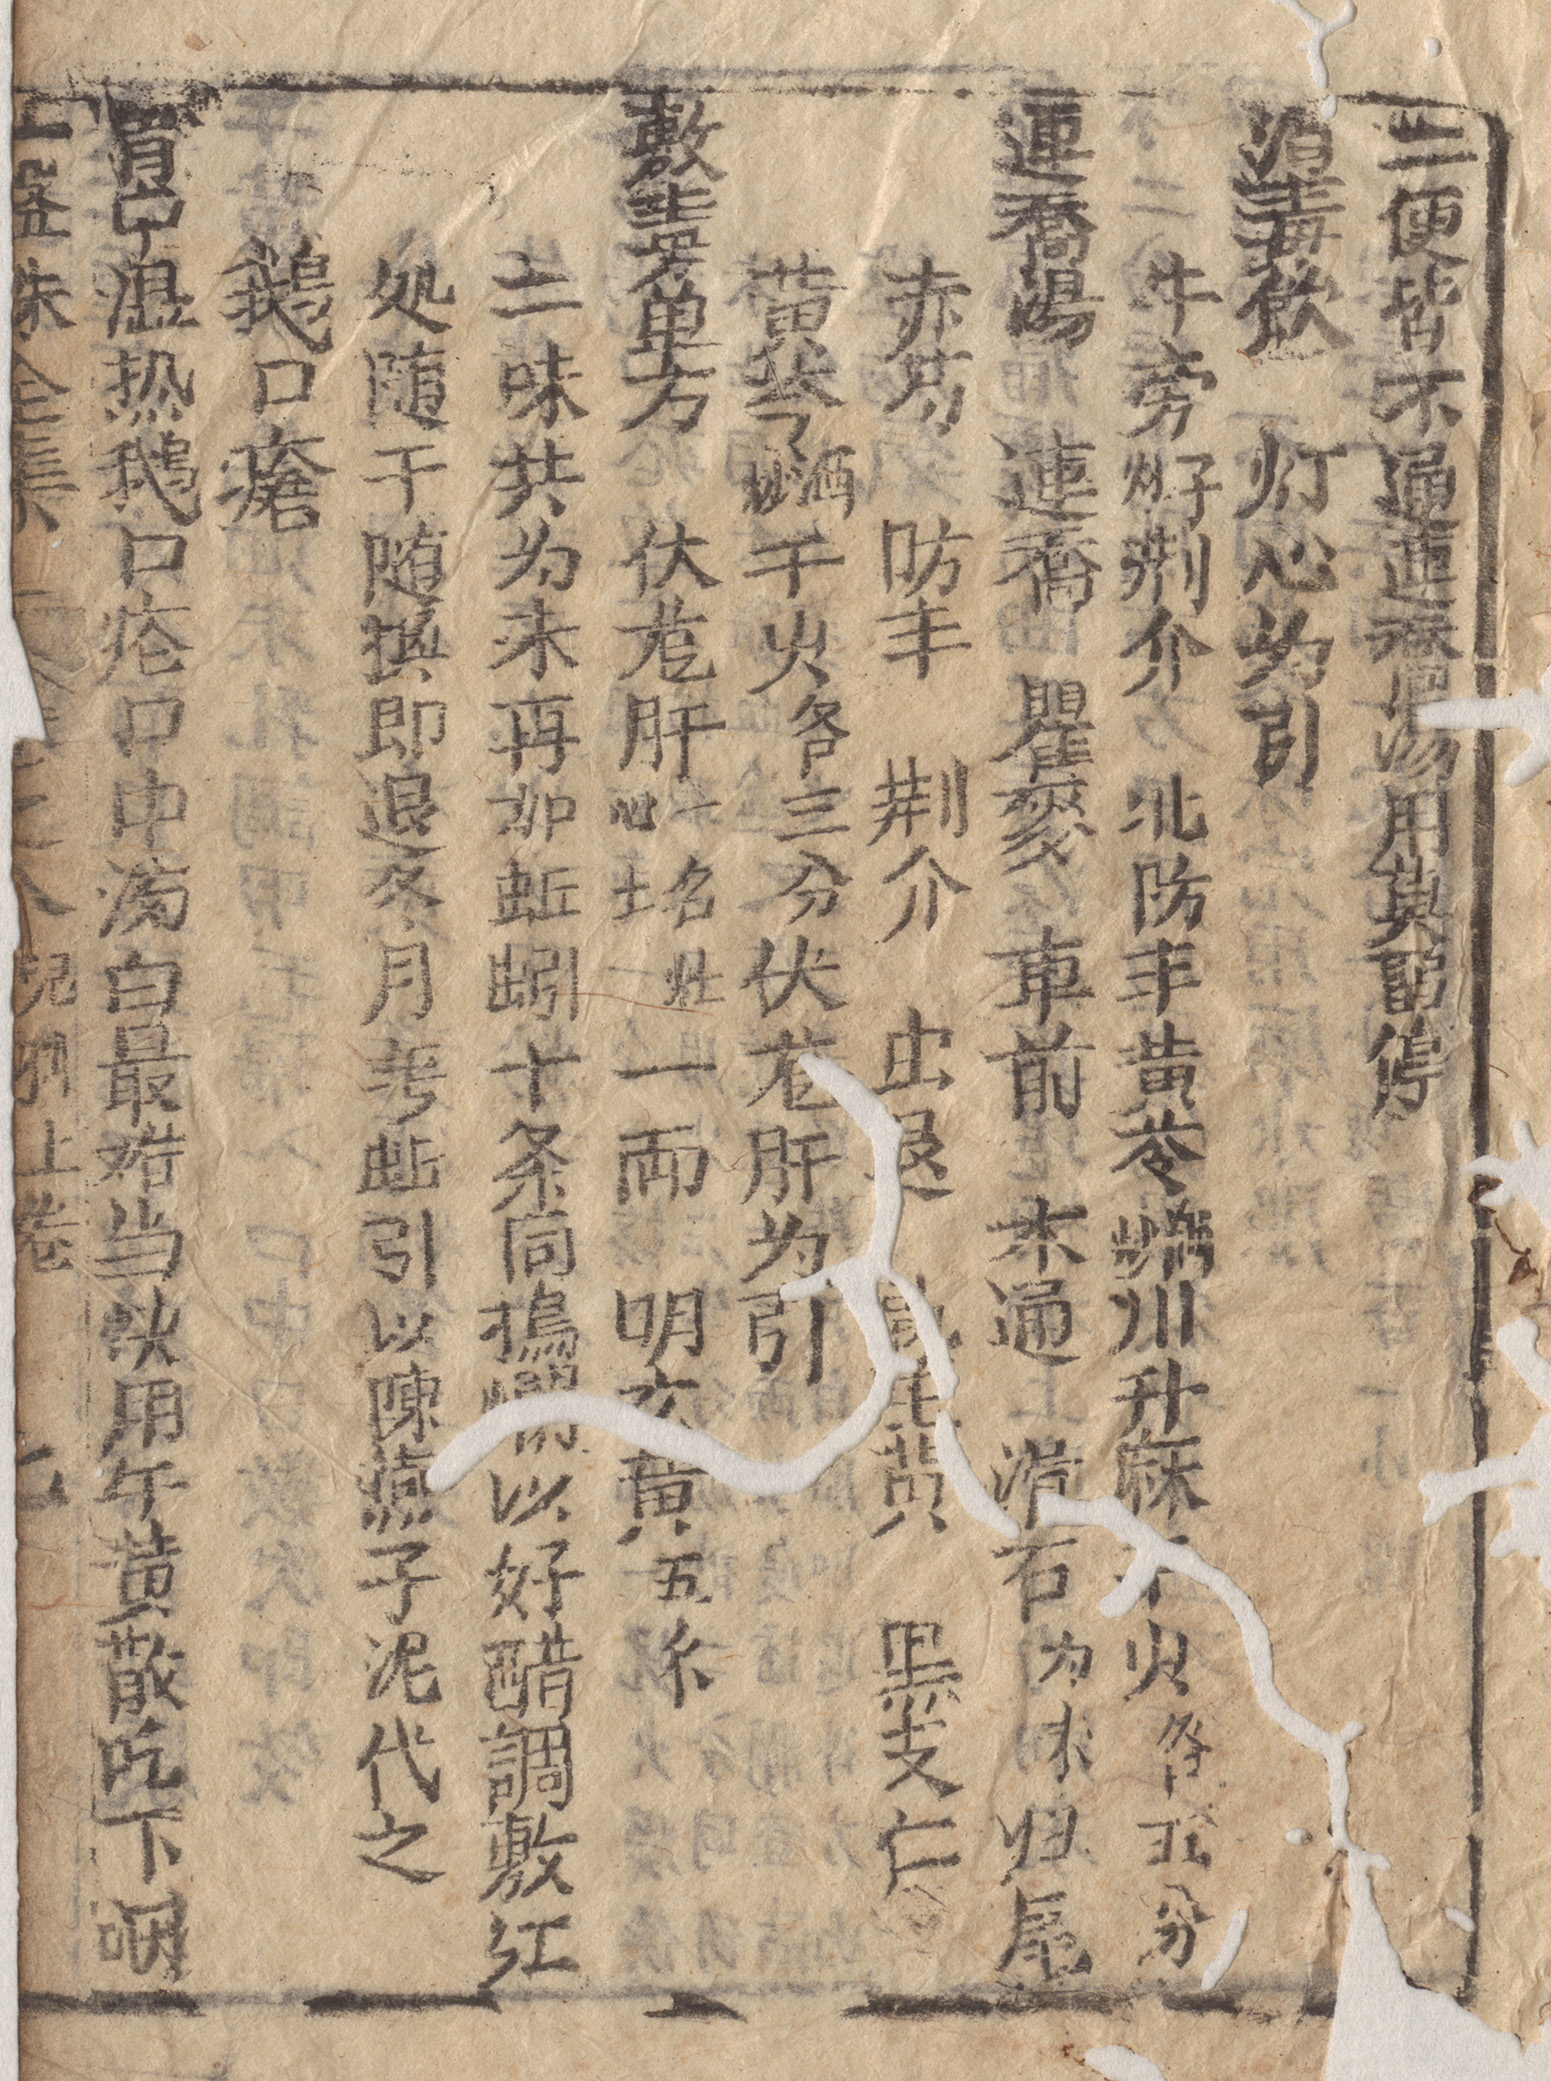 二便皆不通連喬湯用其節停
消毒飲　灯心为引
牛旁炒子荆介　北防丰黄芩酒炒川升麻干火各五分
連喬湯　連喬　瞿麥　車前　木通　滑石为末归尾
赤芍　防丰　荆介　虫退　黄　黑支仁
黄芩酒炒千火各三分伏龙肝为引
敷毒单方　伏龙肝一名灶心土一両　明玄黄五分
二味共为末再加蚯蚓十条同搗爛以好醋調敷红
处随干随换即退冬月考蚯引以陳燕子泥代之
鵝口瘡
胃中湿热鵝口疮口中满白最难当快用午黄散吃下咽
全集　之八　兒科上卷　七